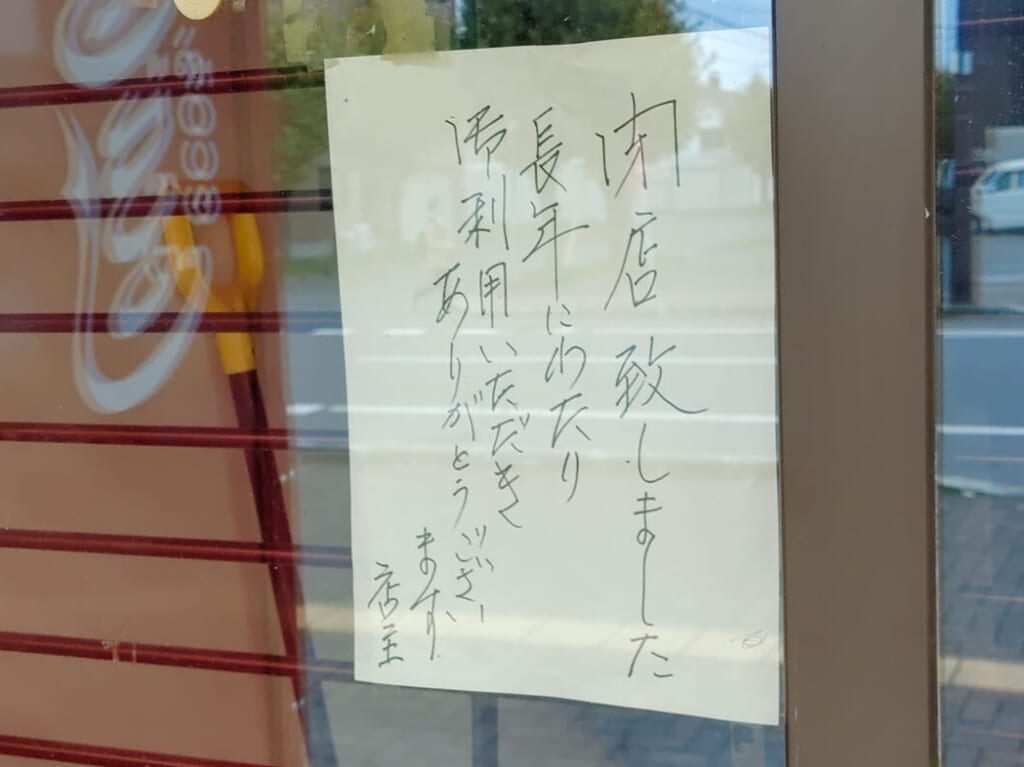 閉店致しました
長年にわたり
御利用いただき
ありがとうござい
ます
店主